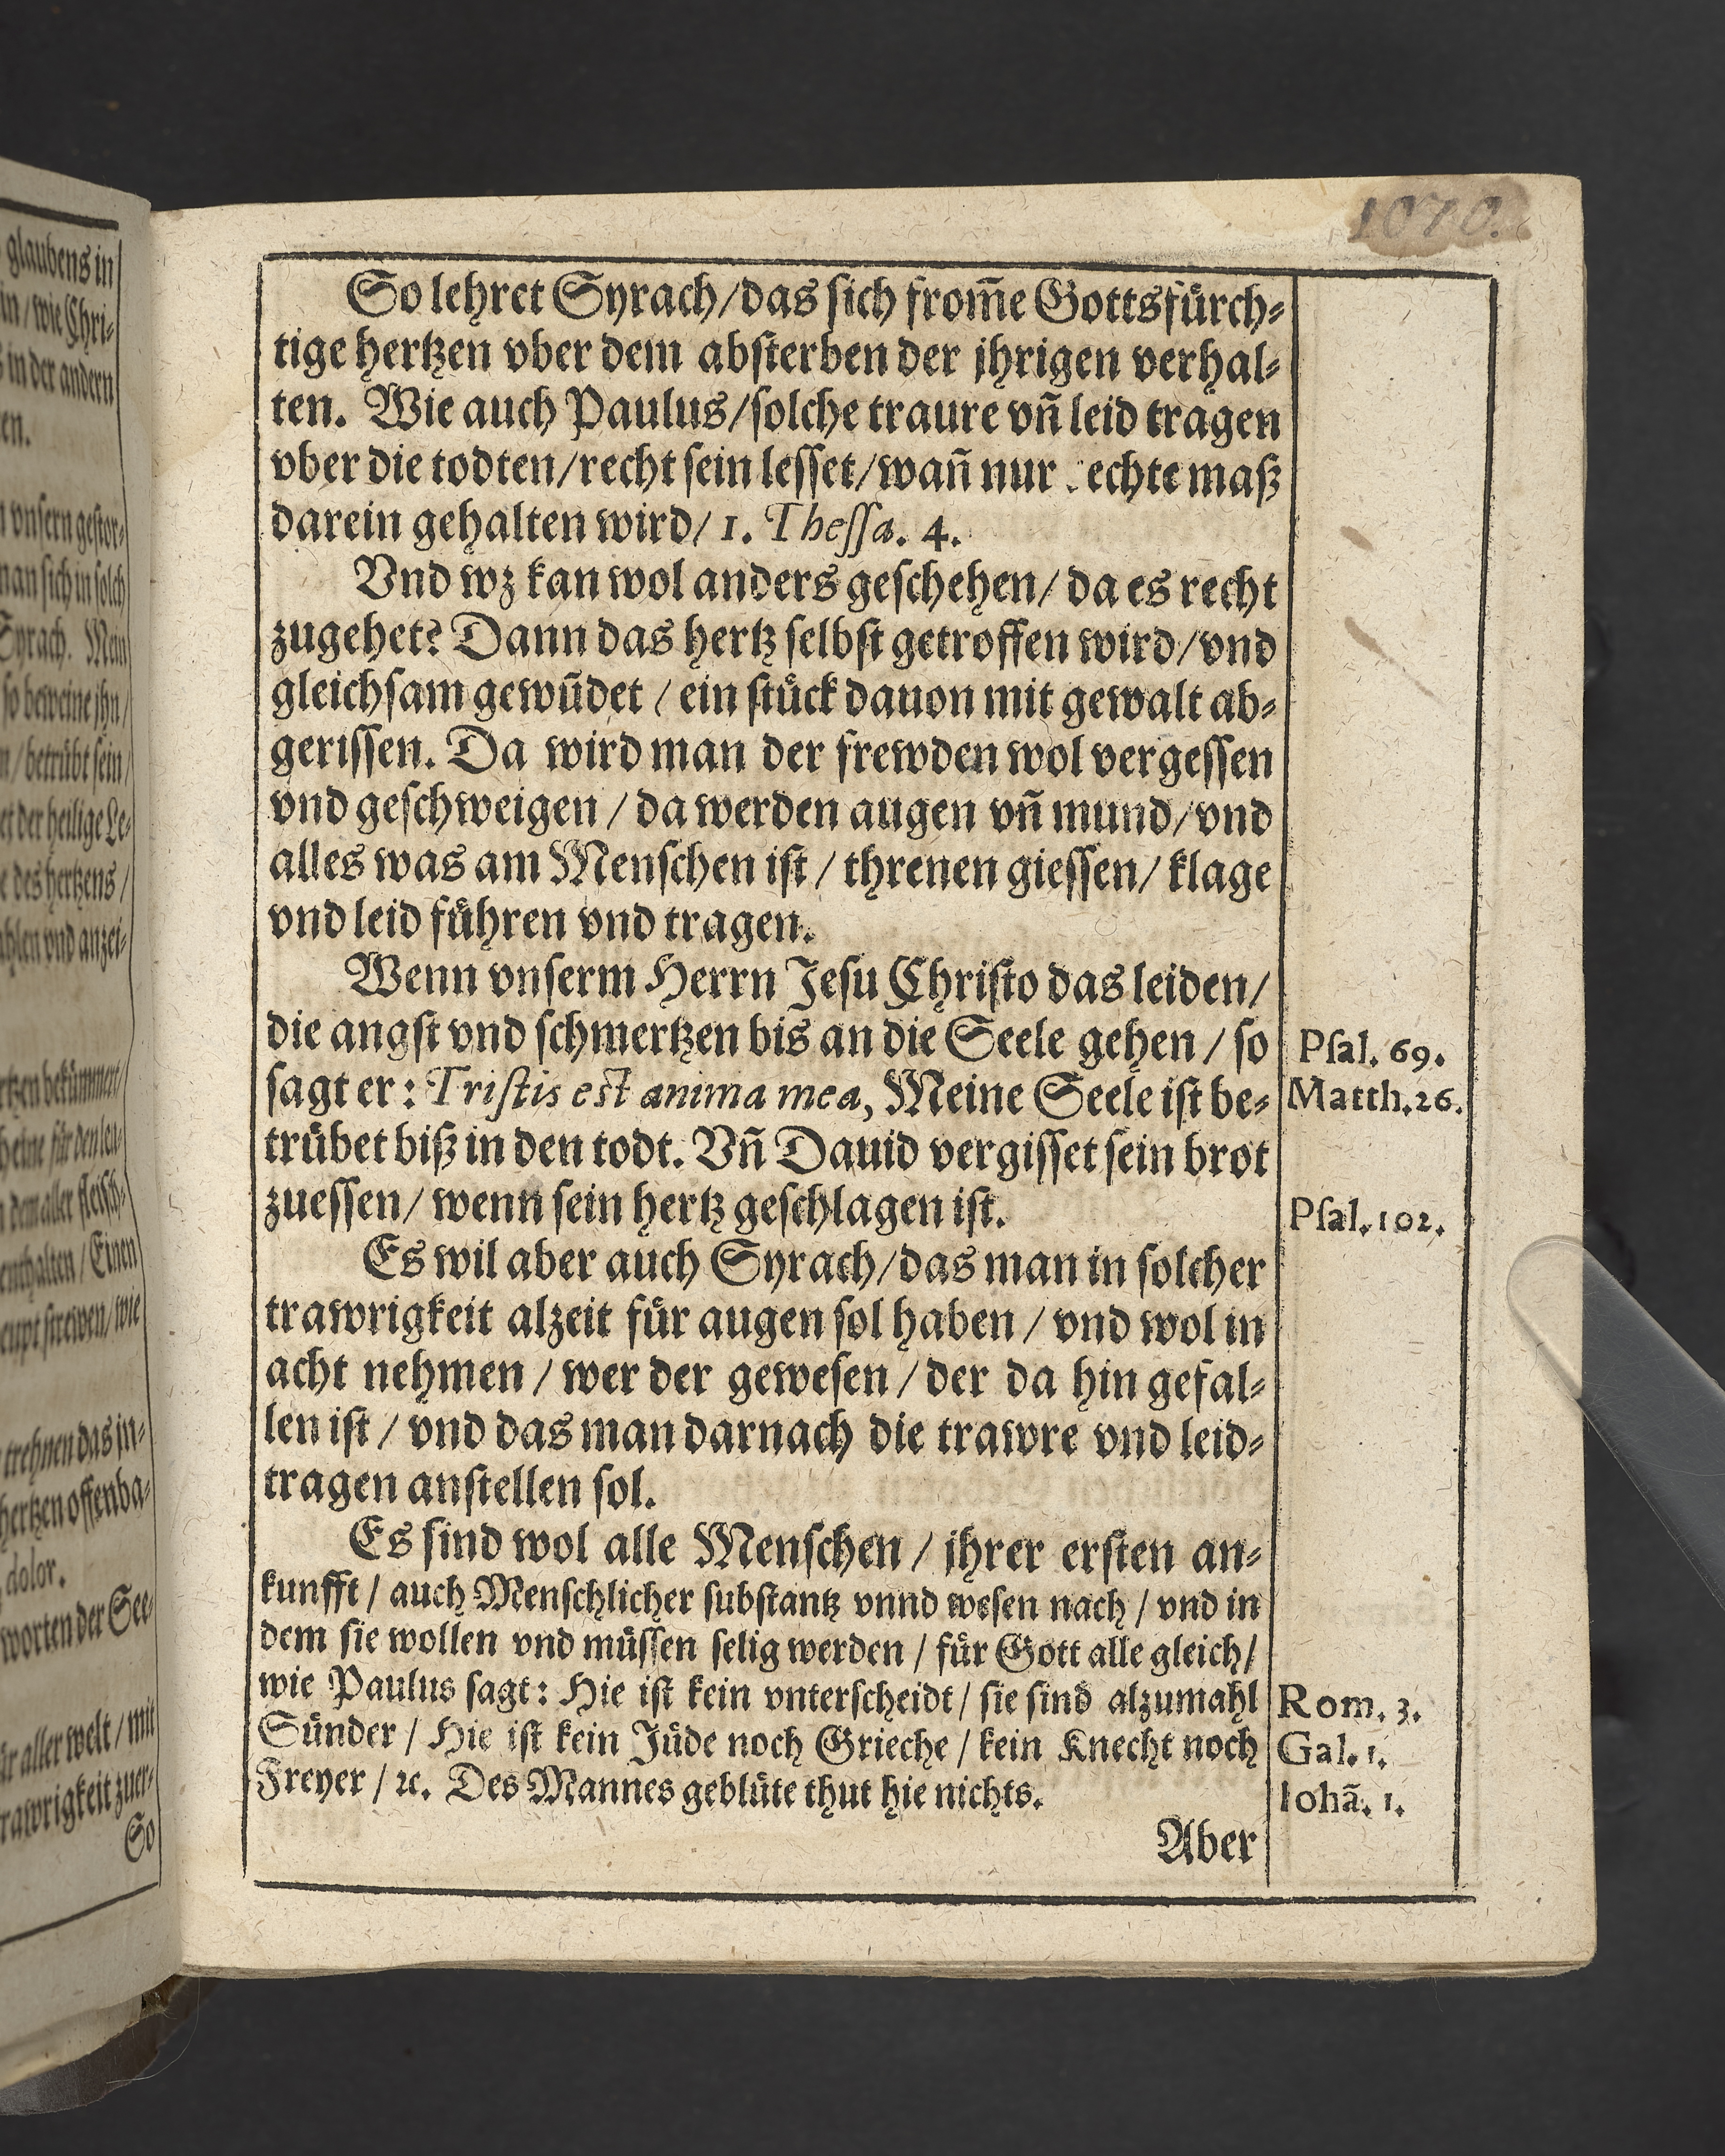 glaubens in
in / wie Chri-
s in der andern
en.
vnsern gestor-
man sich in solch
Syrach. Mein
so beweine jhn /
n / betrübt sein /
et der heilige Le-
e des hertzens /
ahlen vnd anzei-
rtzen bekümmert /
beine für den leu-
dem aber fleisch-
enthalten / Einen
eupt strewen / wie
trehnen das in-
hertzen offenba-
dolor.
worten der See-
ür aller welt / mit
rawrigkeit zuer-
So
1070.
So lehret Syrach / das sich from̃e Gottsfürch-
tige hertzen vber dem absterben der jhrigen verhal-
ten. Wie auch Paulus / solche traure vñ leid tragen
vber die todten / recht sein lesset / wañ nur echte maß
darein gehalten wird / 1. Thessa. 4.
Vnd wz kan wol anders geschehen / da es recht
zugehet? Dann das hertz selbst getroffen wird / vnd
gleichsam gewũdet / ein stück dauon mit gewalt ab-
gerissen. Da wird man der frewden wol vergessen
vnd geschweigen / da werden augen vñ mund / vnd
alles was am Menschen ist / threnen giessen / klage
vnd leid führen vnd tragen.
Wenn vnserm Herrn Jesu Christo das leiden /
die angst vnd schmertzen bis an die Seele gehen / so
sagt er: Tristis est anima mea, Meine Seele ist be-
trübet biß in den todt. Vñ Dauid vergisset sein brot
zuessen / wenn sein hertz geschlagen ist.
Es wil aber auch Syrach / das man in solcher
trawrigkeit alzeit für augen sol haben / vnd wol in
acht nehmen / wer der gewesen / der da hin gefal-
len ist / vnd das man darnach die trawre vnd leid-
tragen anstellen sol.
Es sind wol alle Menschen / jhrer ersten an-
kunfft / auch Menschlicher substantz vnnd wesen nach / vnd in
dem sie wollen vnd müssen selig werden / für Gott alle gleich /
wie Paulus sagt: Hie ist kein vnterscheidt / sie sind alzumahl
Sünder / Hie ist kein Jüde noch Grieche / kein Knecht noch
Freyer / ꝛc. Des Mannes geblüte thut hie nichts.
Aber
Psal. 69.
Matth. 26.
Psal. 102.
Rom. 3.
Gal. 1.
Iohã. 1.